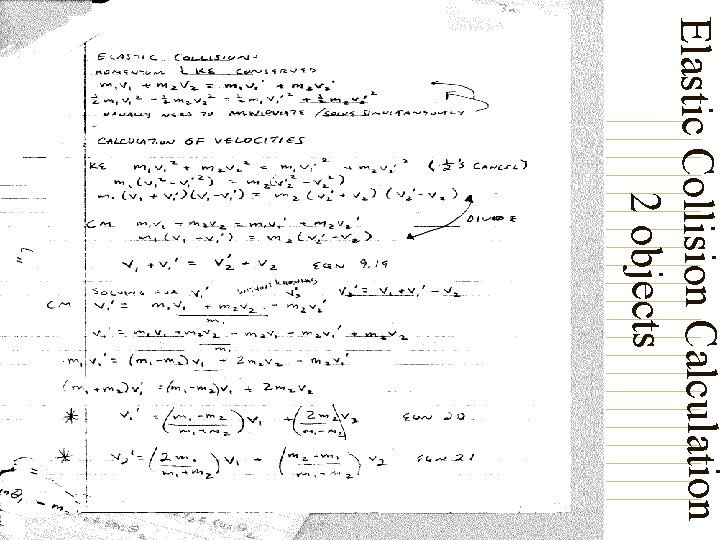 Elastic Collision Calculation
2 objects
ELASTIC COLLISIONS
MOMENTUM & KE CONSERVED
m₁v₁ + m₂v₂ = m₁v₁' + m₂v₂'
½m₁v₁² + ½m₂v₂² = ½m₁v₁'² + ½m₂v₂'²
USUALLY NEED TO MANIPULATE / SOLVE SIMULTANEOUSLY
CALCULATION OF VELOCITIES
KE m₁v₁² + m₂v₂² = m₁v₁'² + m₂v₂'² (½'s CANCEL)
m₁(v₁² - v₁'²) = m₂(v₂'² - v₂²)
m₁(v₁ + v₁')(v₁ - v₁') = m₂(v₂' + v₂)(v₂' - v₂)
CM m₁v₁ + m₂v₂ = m₁v₁' + m₂v₂' DIVIDE
m₁(v₁ - v₁') = m₂(v₂' - v₂)
v₁ + v₁' = v₂' + v₂ EQN 9.19
SOLVING FOR v₁' without knowing v₂' v₂' = v₁ + v₁' - v₂
CM v₁' = m₁v₁ + m₂v₂ - m₂v₂' / m₁
v₁' = m₁v₁ + m₂v₂ - m₂v₁ - m₂v₁' + m₂v₂ / m₁
m₁v₁' = (m₁-m₂)v₁ + 2m₂v₂ - m₂v₁'
(m₁+m₂)v₁' = (m₁-m₂)v₁ + 2m₂v₂
* v₁' = (m₁-m₂ / m₁+m₂)v₁ + (2m₂ / m₁+m₂)v₂ EQN 20
* v₂' = (2m₁ / m₁+m₂)v₁ + (m₂-m₁ / m₁+m₂)v₂ EQN 21